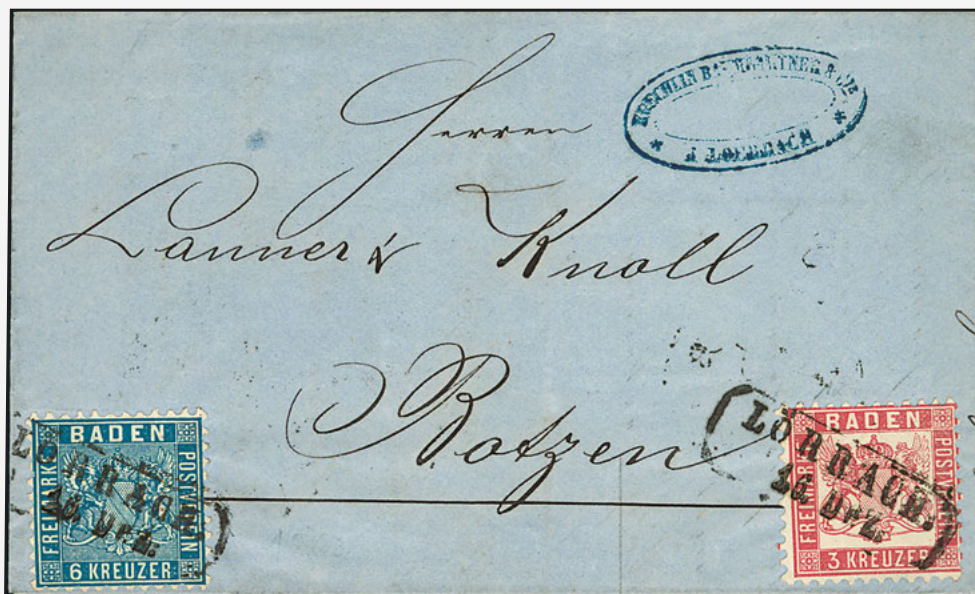 & CIE
* J. LOERRACH *
Herren
Lanner & Knoll
Botzen
BADEN
FREIMARKE
POSTVEREIN
6 KREUZER
LÖRRACH.
16 Dez.
BADEN
FREIMARKE
POSTVEREIN
3 KREUZER
LÖRRACH.
16 Dez.